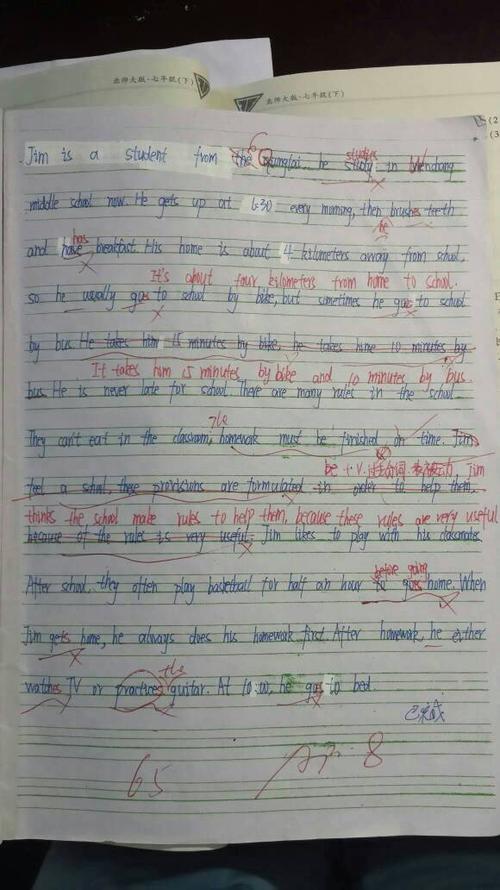 北师大版·七年级(下)
北师大版·七年级(下)
Jim is a student from the Guanglai. he study in Wendong
studies
middle school now. He gets up at 6:30 every morning, then brushes teeth
he
has
and have breakfast. His home is about 4 kilometers away from school.
It's about four kilometers from home to school.
so he usually goes to school by bike, but sometimes he goes to school
by bus. He takes him 15 minutes by bike, he takes hime 10 minutes by
It takes him 15 minutes by bike and 10 minutes by bus.
bus. He is never late for school. There are many rules in the school.
The
They can't eat in the classroom, homework must be finished on time. Jim
be + V.过去分词. 表被动, Jim
feel a school, these provisions are formulated in order to help them,
thinks the school make rules to help them, because these rules are very useful
because of the rules is very useful. Jim likes to play with his classmates.
before going
After school, they often play basketball for half an hour to goes home. When
Jim gets home, he always does his homework first. After homework, he either
the
watches TV or practices guitar. At 10:00, he goes to bed.
已完成
65
8